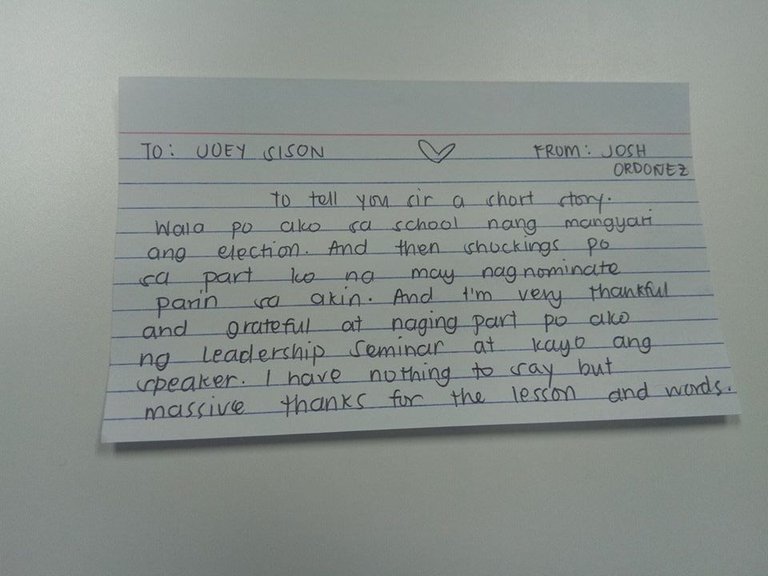 TO: JOEY SISON FROM: JOSH
ORDONEZ
To tell you sir a short story.
Wala po ako sa school nang mangyari
ang election. And then shockings po
sa part ko na may nag nominate
parin sa akin. And I'm very thankful
and grateful at naging part po ako
ng leadership seminar at kayo ang
speaker. I have nothing to say but
massive thanks for the lesson and words.